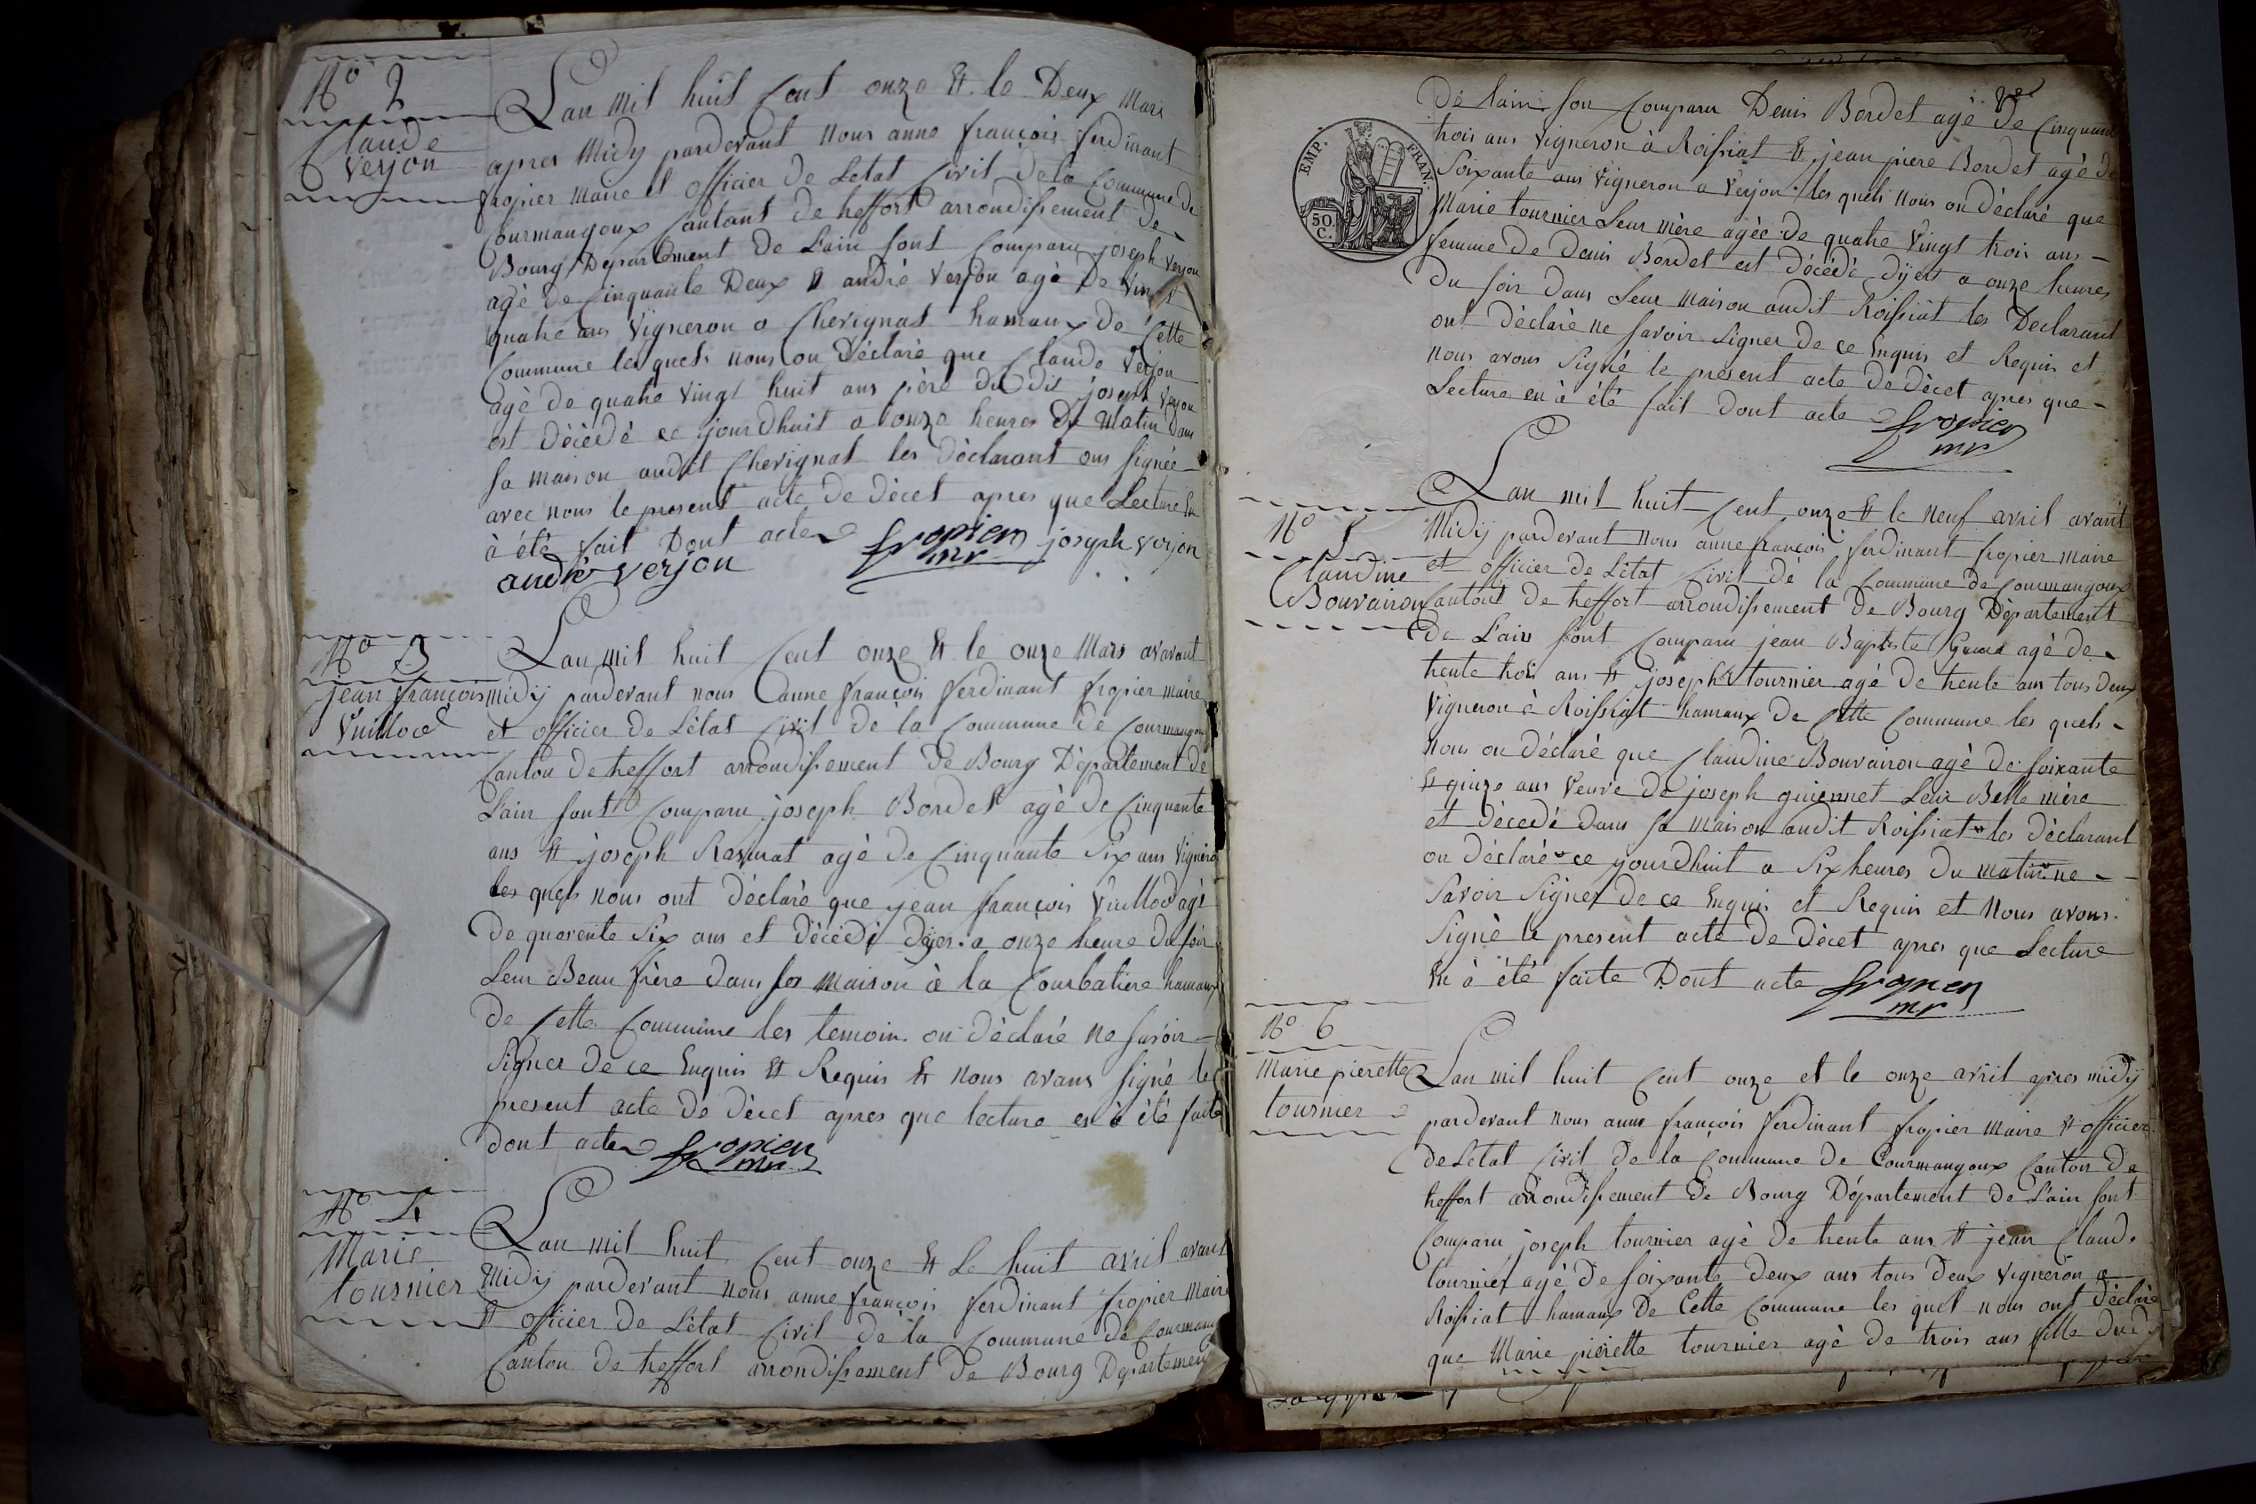 No 2
Claude
Verjon
Lan mil huit Cent onze & le Deux Mars
apres Midy pardevant nous anne françois ferdinant
fropier Maire et officier de Letat Civil de la Commune de
Courmangoux Cantant de treffort arrondissement de
Bourg Departement de Lain sont Comparu joseph Verjon
agé de Cinquante Deux & andré Verjon agé De Vingt
quatre ans Vigneron a Chevignat hamaux De Cette
Commune les quels nous on Déclaré que Claude Verjon
agé De quatre Vingt huit ans père du dit joseph Verjon
est décédé ce jourdhuit a onze heures du Matin dans
sa maison audit Chevignat les déclarant ons signée
avec nous le present acte de décet apres que Lecture En
à été fait Dont acte fropier joseph verjon
mr
andré verjon
No 3
jean françois
Vuillod
Lan mil huit Cent onze & le onze Mars avavant
midij pardevant nous anne françois ferdinant fropier maire
et officier de Létat Civil de la Commune de Courmangoux
Canton de treffort arrondissement de Bourg Département de
Lain sont Comparu joseph Bordet agé de Cinquante
ans & joseph Ravinat agé de Cinquante Six ans Vigneron
les quels nous ont déclaré que jean françois Vuillod agé
De quarente Six ans et décédé dijer a onze heure Du soir
Leur Beau frère dans sa maison à la Courbatiere hamaux
de Cette Commune les temoin on déclaré ne savoir
Signer de ce Enquis & Requis & nous avans signé le
present acte de décet apres que lecture en à été faite
dont acte fropier
mr
No 4
Marie
tournier
Lan mil huit Cent onze & Le huit avril avant
Midij pardevant nous anne françois ferdinant fropier Maire
& officier de Létat Civil de la Commune de Courmangoux
Canton de treffort arrondissement de Bourg Departement
EMP. FRAN.
50
C.
De Lain son Comparu Denis Bordet agé de Cinquante
trois ans Vigneron à Roissiat & jean piere Bordet agé de
Soixante ans Vigneron a Verjon les quels nous on déclaré que
Marie tournier Leur mère agée de quatre Vingt trois ans
femme de Denis Bordet est décédé dijer a onze heures
Du soir dans Leur maison audit Roissiat les Declarant
ont déclaré ne savoir signer de ce Enquis et Requis et
nous avons signé le present acte de décet apres que
Lecture en à été fait Dont acte fropier
mr
No 5
Claudine
Bouvairon
Lan mil huit Cent onze & le neuf avril avant
Midij pardevant nous anne françois ferdinant fropier maire
et officier de Létat Civil de la Commune de Courmangoux
Cantont de treffort arrondissement de Bourg Département
de Lain sont Comparu jean Baptiste agé de
trente trois ans & joseph tournier agé de trente ans tous deux
Vigneron à Roissiat hamaux de Cette Commune les quels
nous on déclaré que Claudine Bouvairon agé de soixante
& quinze ans Veuve de joseph guiennet Leur Belle mère
et décedé dans sa maison audit Roissiat les déclarant
on déclaré ce jourdhuit a Six heures du matin ne
Savoir signer de ce Enquis et Requis et nous avons
Signé le present acte de décet apres que Lecture
En à été faite Dont acte fropier
mr
No 6
Marie pierette
tournier
Lan mil huit Cent onze et le onze avril apres midy
pardevant nous anne françois ferdinant fropier maire & officier
de Létat Civil de la Commune de Courmangoux Canton de
treffort arrondissement de Bourg Département de Lain sont
Comparu joseph tournier agé de trente ans & jean Claude
tournier agé de soixante deux ans tous deux Vigneron a
Roissiat hamaux de Cette Commune les quel nous ont déclaré
que Marie pierette tournier agé de trois ans fille dud